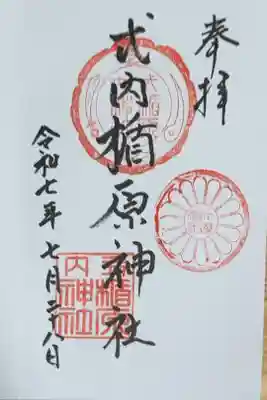 奉拝
式内楯原神社
令和七年 七月二十八日
式内楯原神社